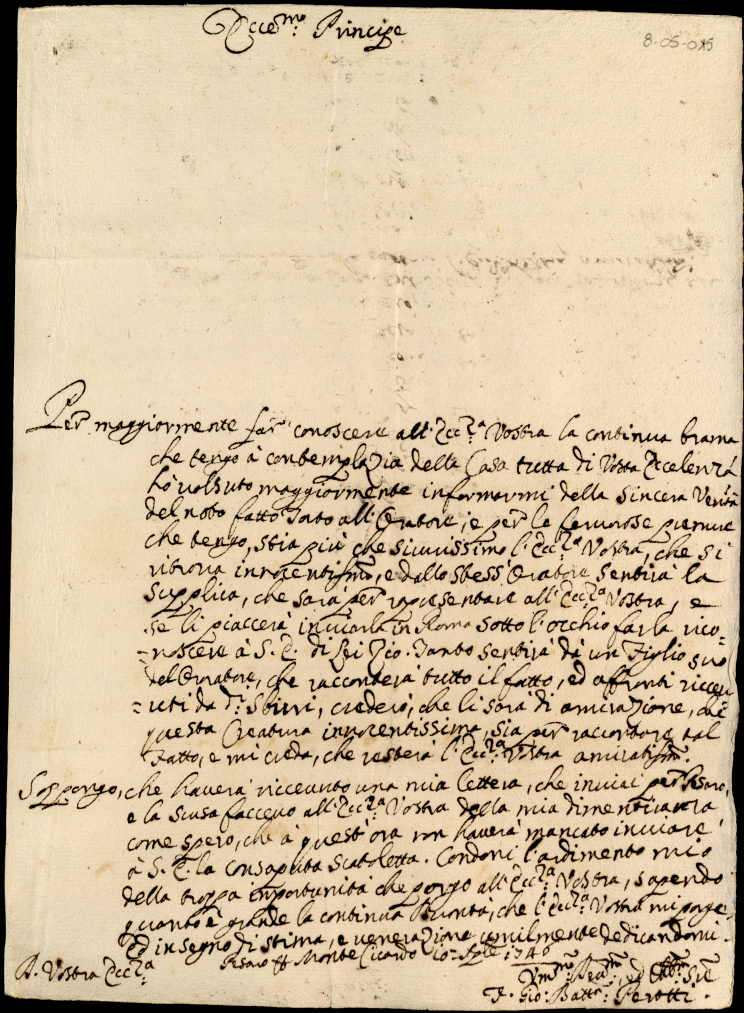 Ecce.mo: Principe
8-05-015
Per maggiormente far conoscere all'Ecc.za Vostra la continua brama
che tengo à contemplazia della Casa tutta di Vosta Eccelenza
hò volsuto maggiormente informarmi della sincera Verità
del noto fatto all'Oratore, e per le premure
che tengo, stia più che sicurissimo l'Ecc.za Vostra, che si
ritrova innocentissimo, e dallo stess'Oratore sentirà la
supplica, che sarà per rapresentare all'Ecc.za Vostra, e
se li piaccerà inviarla in Roma sotto l'occhio farla rico=
=noscere à S. E. di Lei Zio. Tanto sentirà da un Figlio suo
del Oratore, che racconterà tutto il fatto, ed affronti riccev
=uti da d.i Sbirri, crederò, che li sarà di amirazione, che
questa Creatura innocentissima, sia per raccontare tal
Fatto, e mi creda, che resterà l'Ecc.za Vostra amiratissim.
Suppongo, che haverà riccevuto una mia lettera, che inviai per Pesaro,
e la scusa faccevo all'Ecc.za Vostra della mia dimenticanza
come spero, che à quest'ora non haverà mancato inviare
à S. E. la consaputa Scatoletta. Condoni l'ardimento mio
della troppa importunità che porgo all'Ecc.za Vostra, sapendo
quanto è grande la continua Buontà, che l'Ecc.za Vostra mi porge
Ed in segno di stima, e venerazione umilmente dedicandomi
D. Vostra Ecc.za
Pesaro Monte Ciccardo 10 1740
Vm.mo Dev.mo ed Obb.mo
F. Gio: Batt.a Perotti.